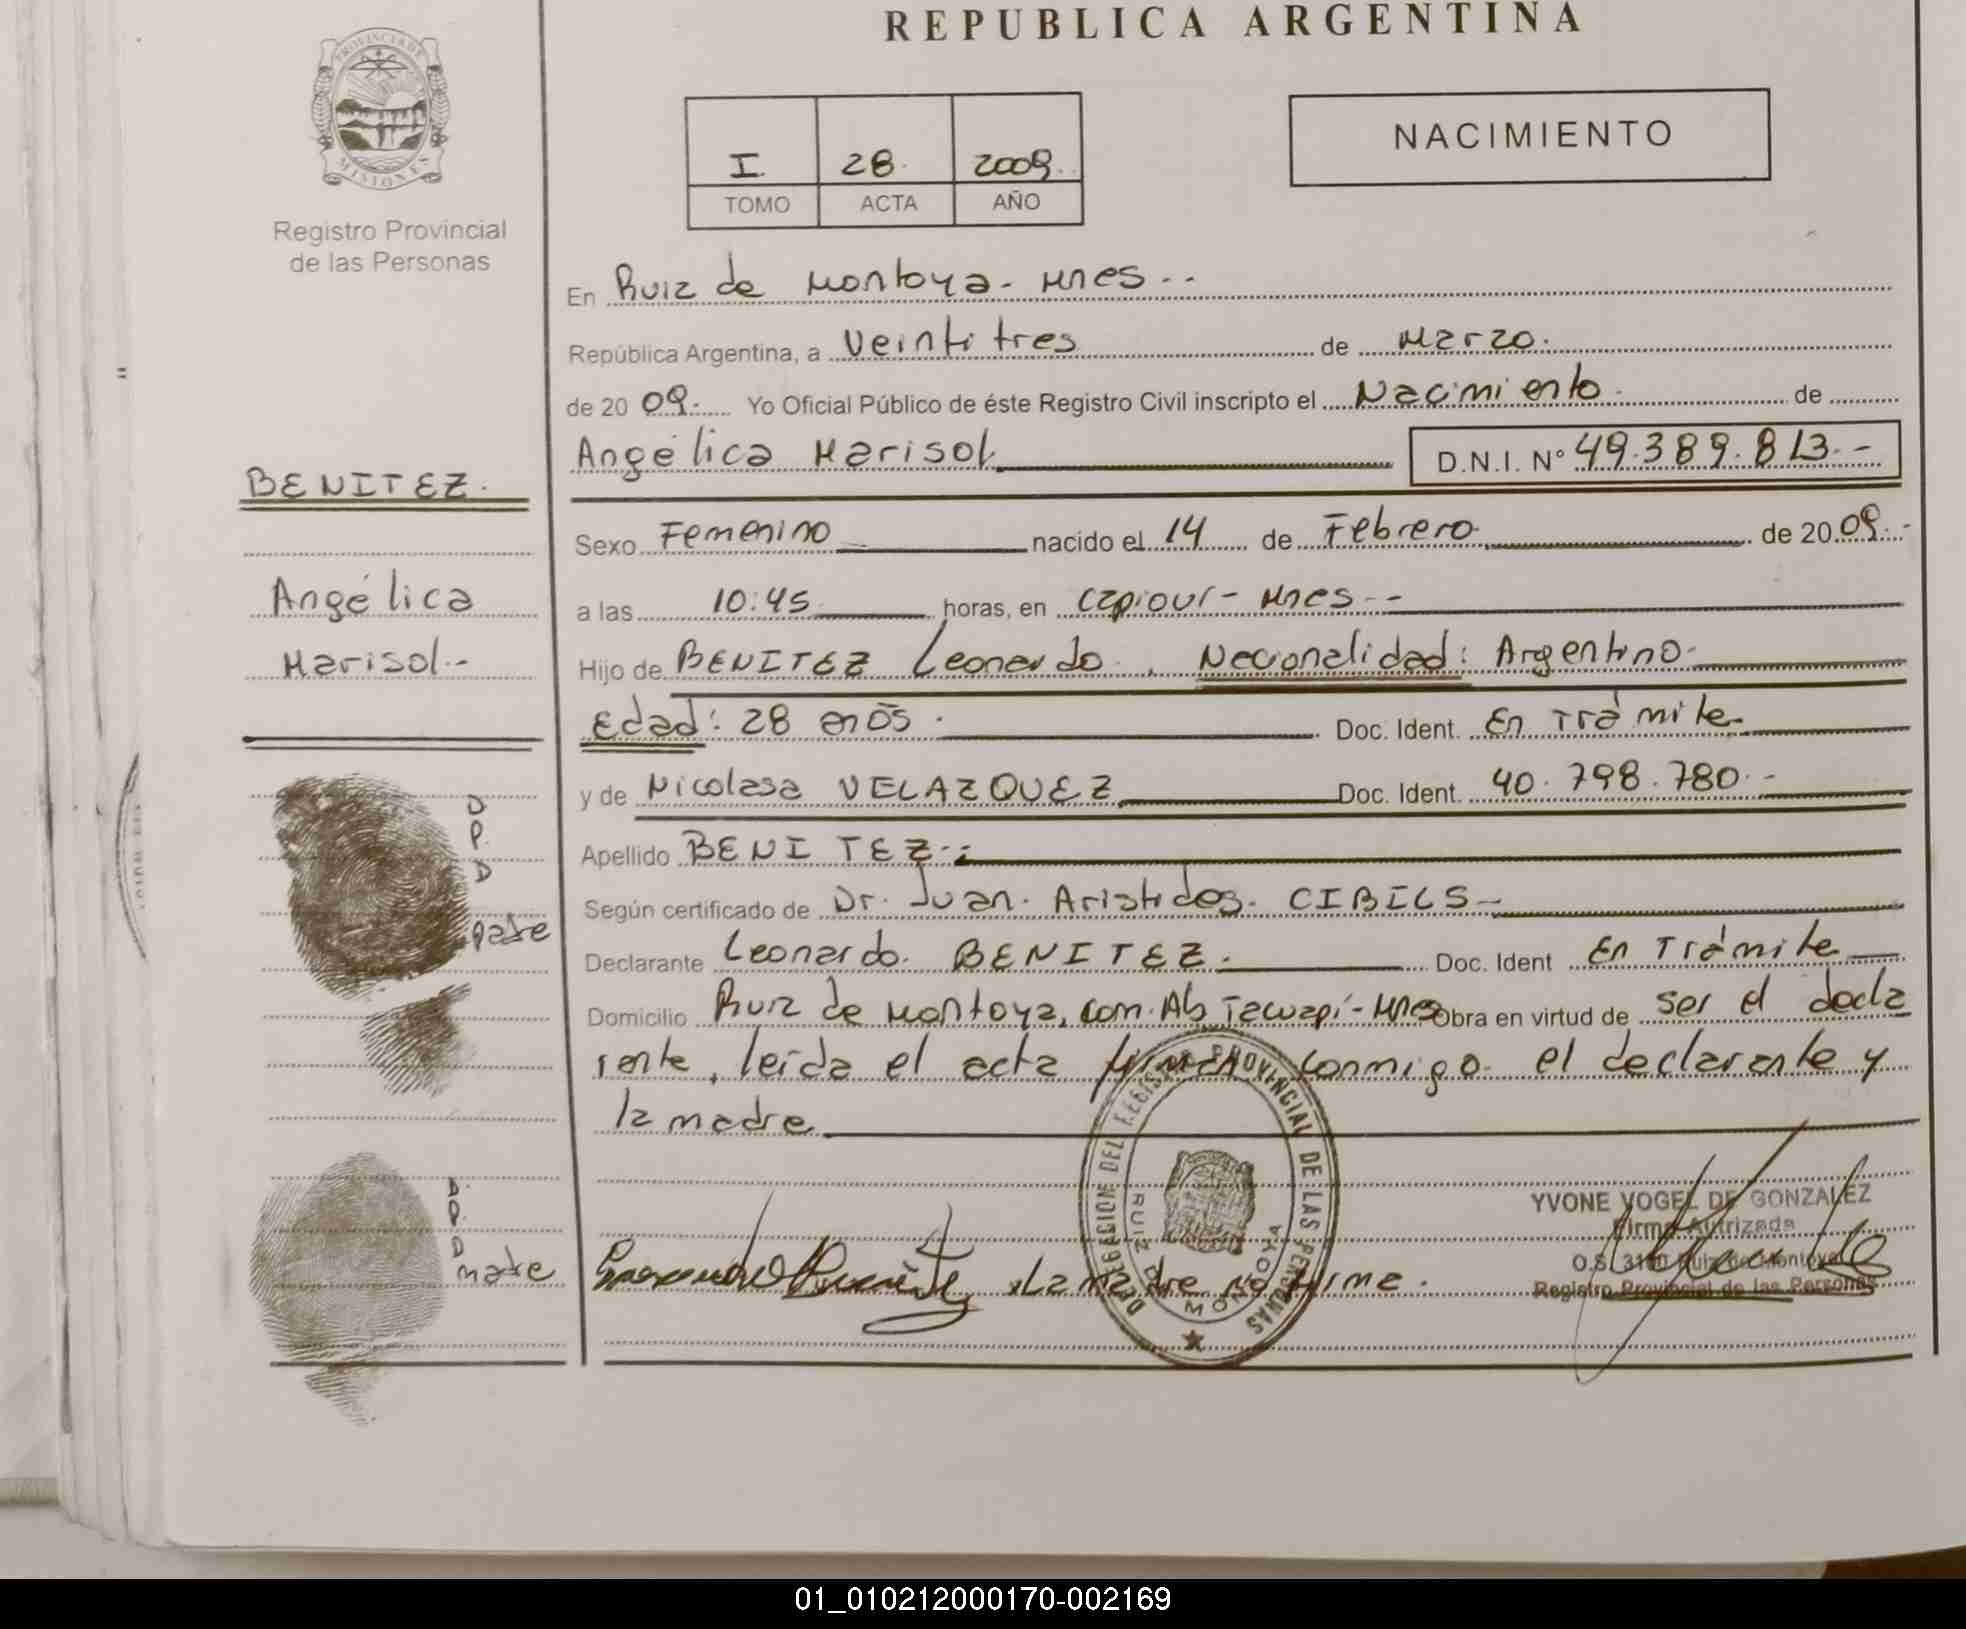 REPUBLICA ARGENTINA
PROVINCIA DE
MISIONES
Registro Provincial
de las Personas
I. 28. 2009.
TOMO ACTA AÑO
NACIMIENTO
En Ruiz de Montoya - Mnes--
República Argentina, a Veintitres de Marzo.
de 20 09. Yo Oficial Público de éste Registro Civil inscripto el Nacimiento de
Angélica Marisol D.N.I. Nº 49.389.813.-
BENITEZ.
Angélica
Marisol.-
Sexo Femenino nacido el 14 de Febrero de 20 09.-
a las 10:45 horas, en Capiovi - Mnes--
Hijo de BENITEZ Leonardo. Nacionalidad: Argentino.
Edad: 28 años. Doc. Ident. En Trámite.
y de Nicolasa VELAZQUEZ Doc. Ident. 40.798.780.-
Apellido BENITEZ.-
Según certificado de Dr. Juan. Aristides. CIBILS-
Declarante Leonardo. BENITEZ. Doc. Ident En Trámite
Domicilio Ruiz de Montoya, com. Ab Tacuapí - Mnes Obra en virtud de ser el decla
rante, leída el acta firman conmigo el declarante y
la madre
D.
P.
D
padre
D.
P.
D
madre
DELEGACION DEL REGISTRO PROVINCIAL DE LAS PERSONAS
RUIZ DE MONTOYA
La madre no firma.
YVONE VOGEL DE GONZALEZ
Firma Autrizada
O.S. Ruiz de Montoya
Registro Provincial de las Personas
01_010212000170-002169